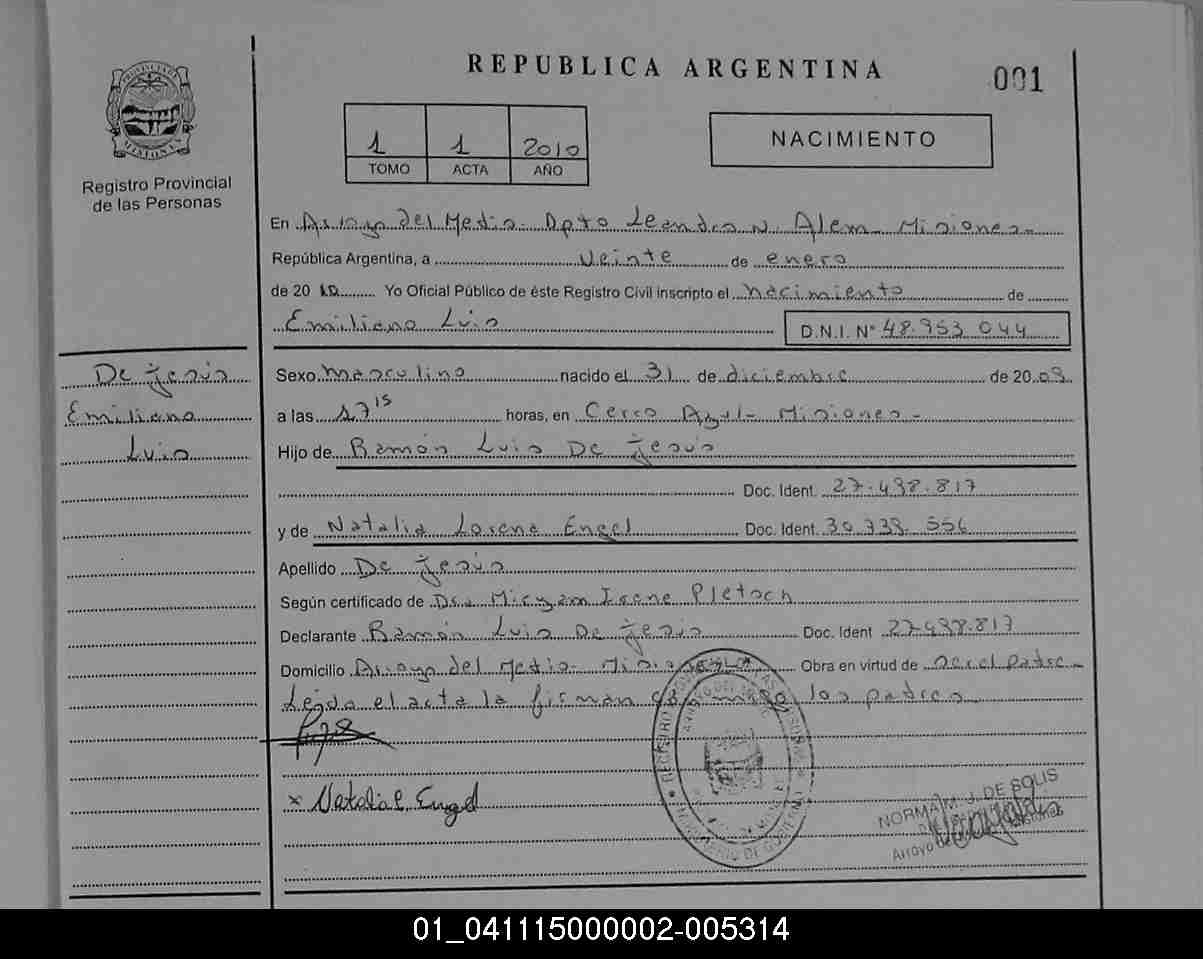 REPUBLICA ARGENTINA
001
PROVINCIA DE MISIONES
Registro Provincial
de las Personas
1 1 2010
TOMO ACTA AÑO
NACIMIENTO
En Arroyo del Medio - Dpto Leandro N. Alem - Misiones -
República Argentina, a veinte de enero
de 20 10 Yo Oficial Público de éste Registro Civil inscripto el nacimiento de
Emiliano Luis D.N.I. N° 48.953.044
De Jesús
Emiliano
Luis
Sexo masculino nacido el 31 de diciembre de 20 09
a las 17 15 horas, en Cerro Azul - Misiones -
Hijo de Ramón Luis De Jesús
Doc. Ident. 27.498.817
y de Natalia Lorena Engel Doc. Ident. 30.738.556
Apellido De Jesús
Según certificado de Dra Miryam Irene Pletsch
Declarante Ramón Luis De Jesús Doc. Ident 27.498.817
Domicilio Arroyo del Medio - Misiones Obra en virtud de ser el padre -
Leída el acta la firman conmigo los padres -
x Natalia L Engel
NORMA M. J. DE SOLIS
Arroyo
01_041115000002-005314